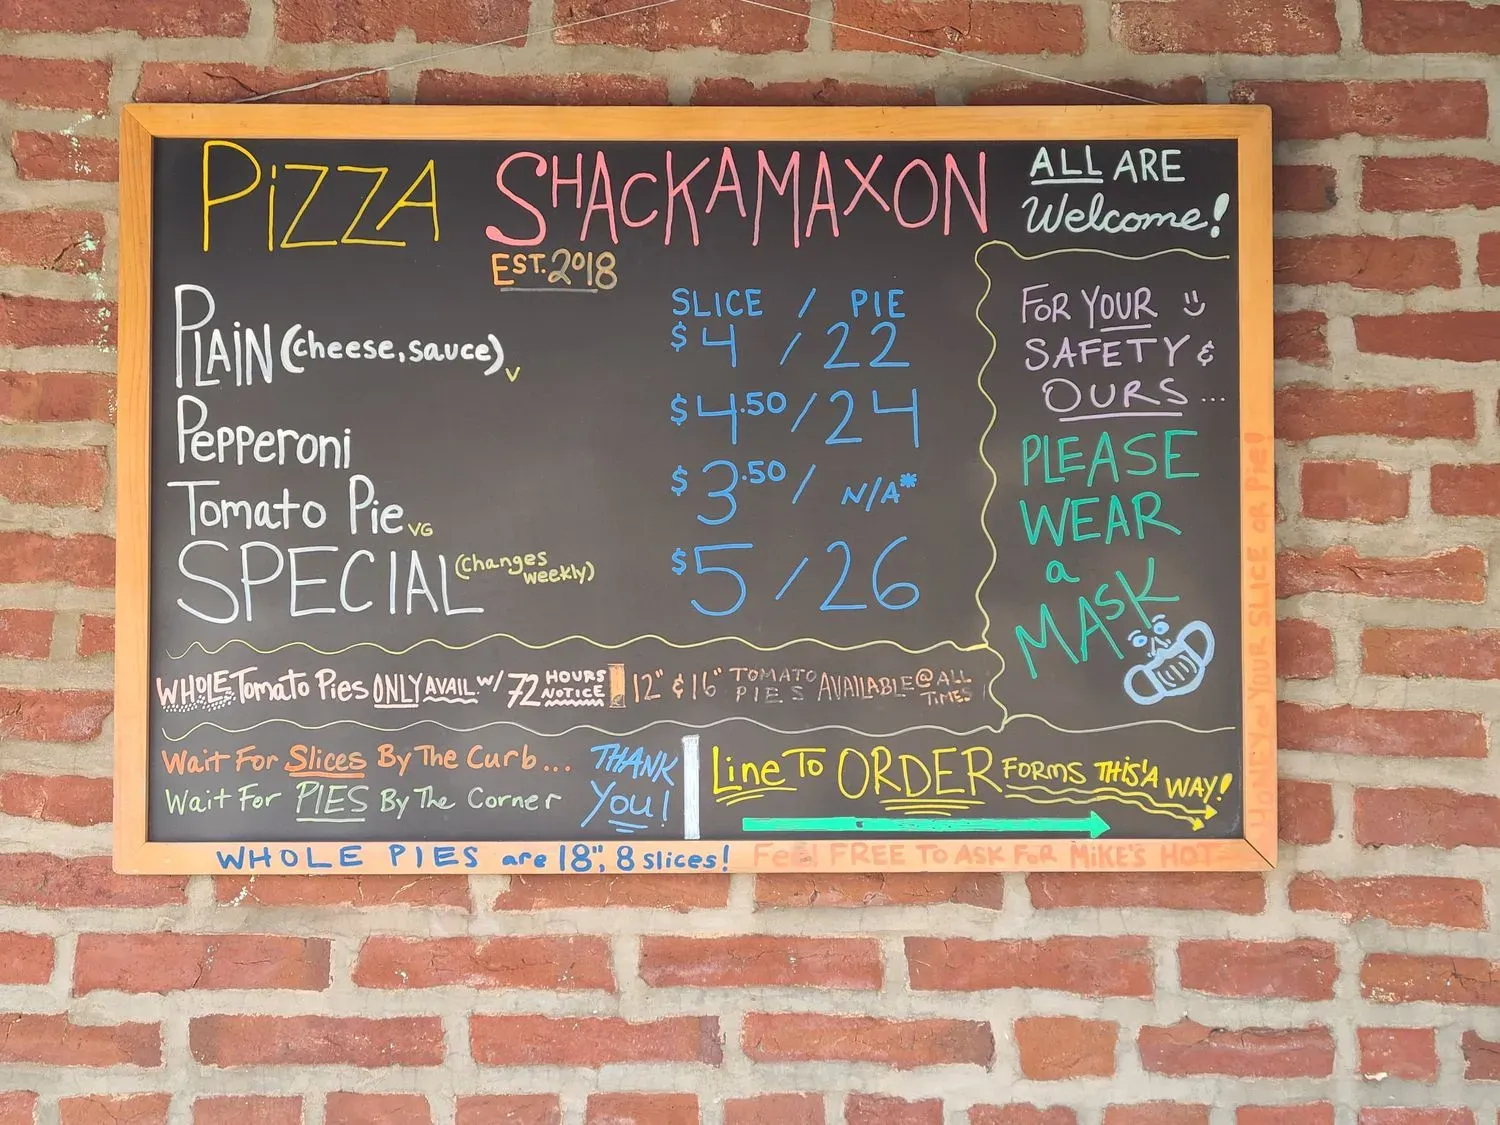 PiZZA SHACKAMAXON
EST. 2018
ALL ARE
Welcome!
SLICE / PIE
PLAiN (cheese, sauce) V $4 / 22
Pepperoni $4.50 / 24
Tomato Pie VG $3.50 / N/A*
SPECIAL (changes weekly) $5 / 26
FOR YOUR
SAFETY &
OURS...
PLEASE
WEAR
a
MASK
WHOLE Tomato Pies ONLY AVAIL. w/ 72 HOURS NOTICE 12" & 16" TOMATO PIES AVAILABLE @ ALL TiMES
Wait For Slices By The Curb...
Wait For PIES By The Corner
THANK
You!
Line To ORDER FORMS THIS'A WAY!
WHOLE PIES are 18", 8 slices! Feel FREE TO ASK FoR MiKE'S HOT
HONEY ON YOUR SLICE OR PiE!